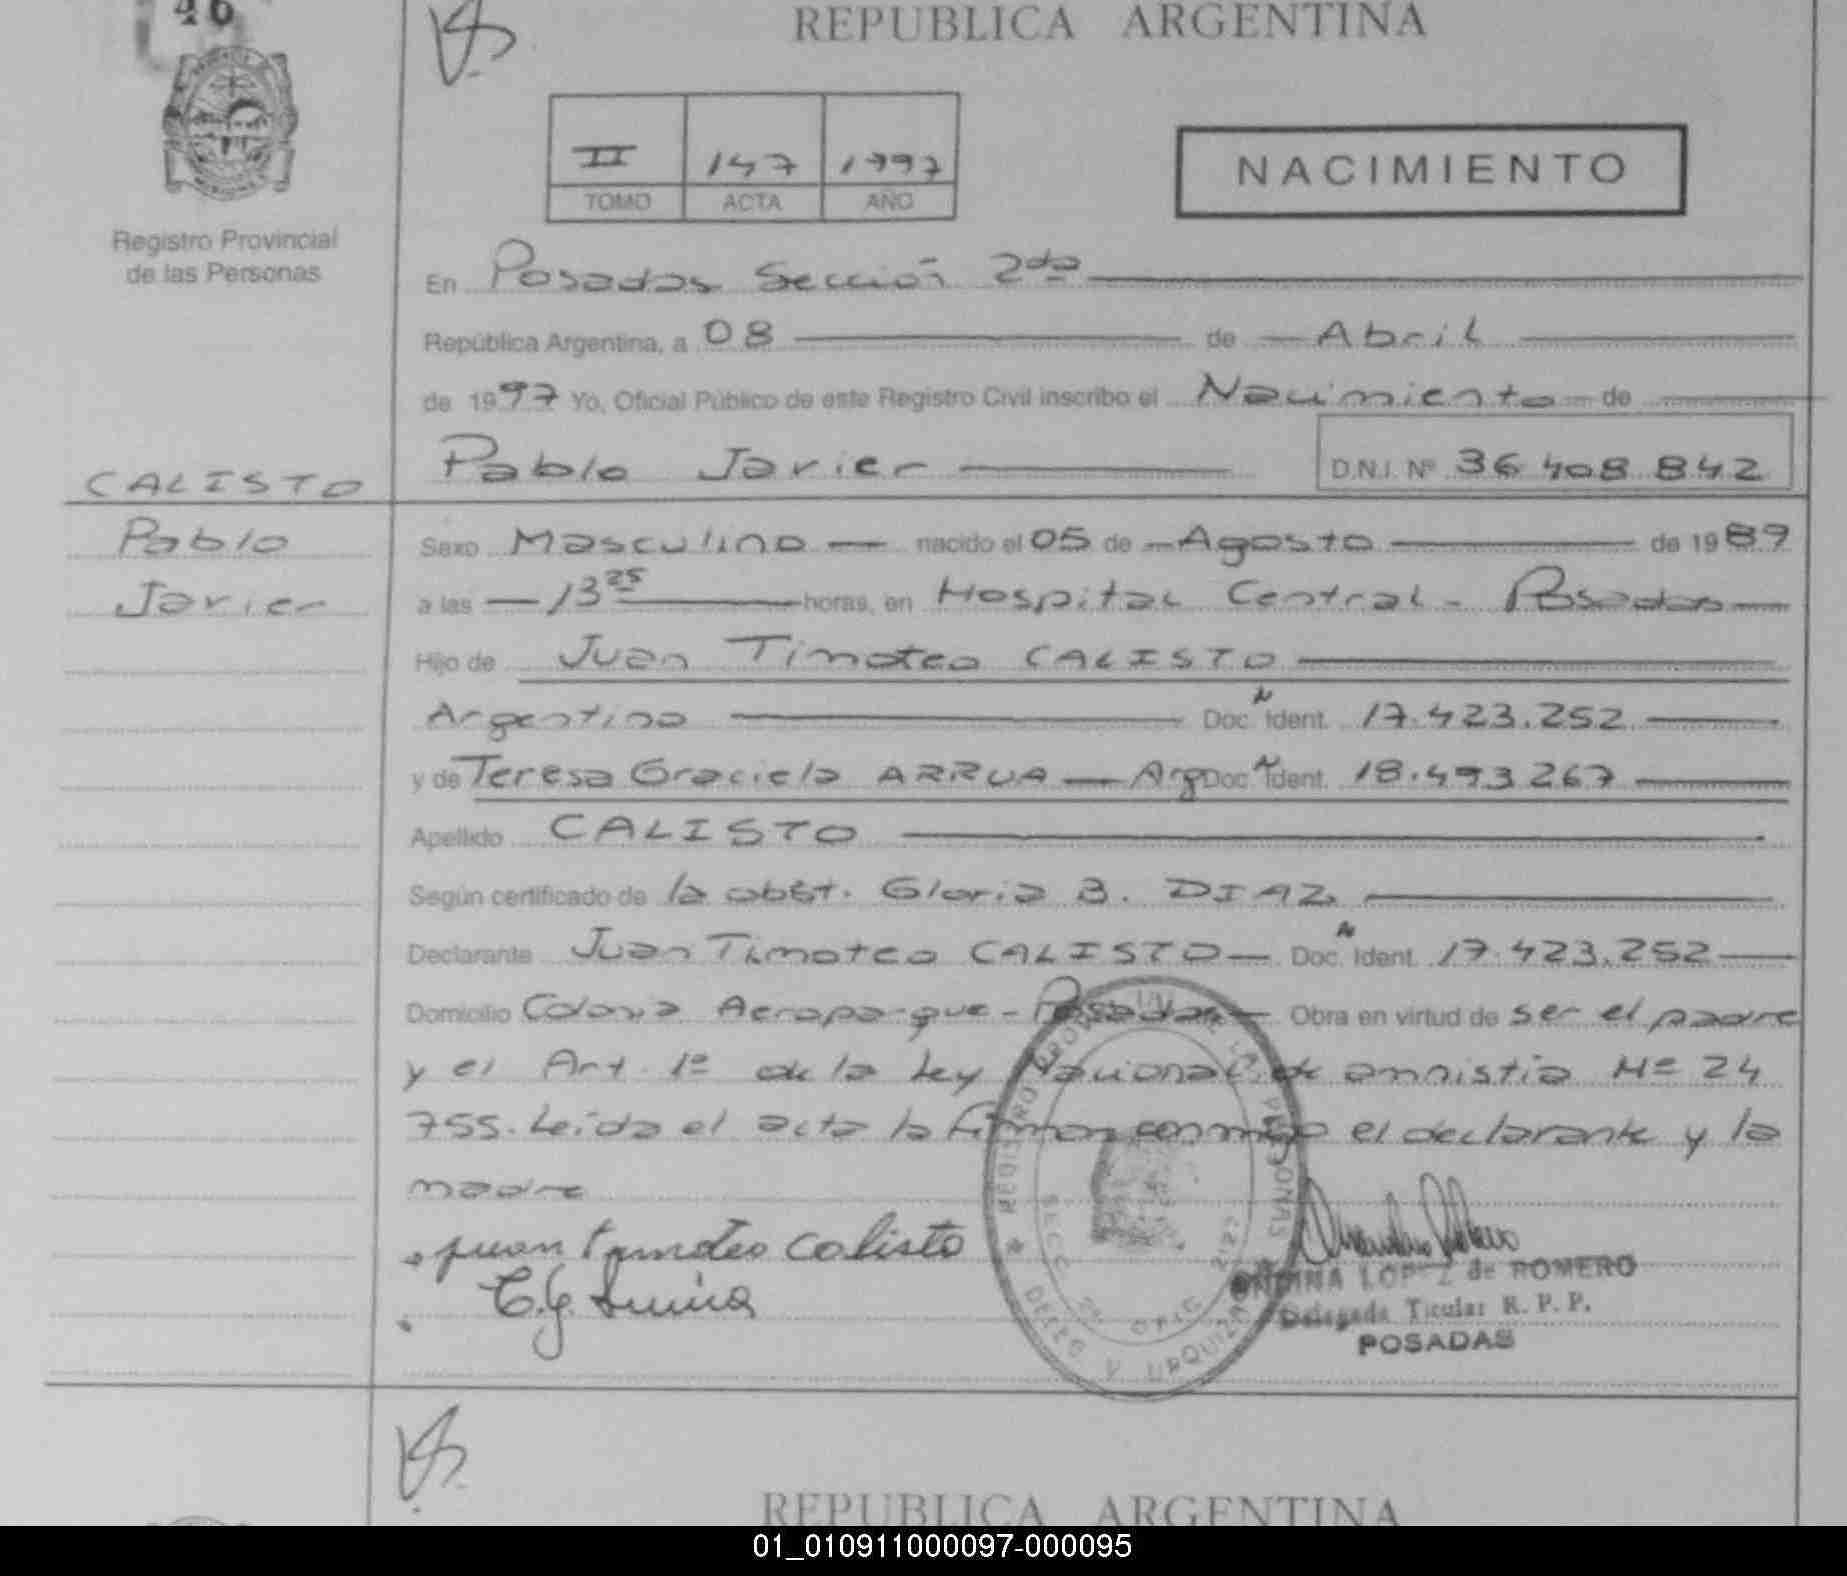 46
REPUBLICA ARGENTINA
II 147 1997
TOMO ACTA AÑO
NACIMIENTO
Registro Provincial
de las Personas
En Posadas Sección 2da
República Argentina, a 08 de Abril
de 1997 Yo, Oficial Público de este Registro Civil inscribo el Nacimiento de
Pablo Javier D.N.I. Nº 36 408 842
CALISTO
Pablo
Javier
Sexo Masculino nacido el 05 de Agosto de 1989
a las 13 25 horas, en Hospital Central - Posadas
Hijo de Juan Timoteo CALISTO
Argentino Doc. N Ident. 17.423.252
y de Teresa Graciela ARRUA Arg Doc. N Ident. 18.493.267
Apellido CALISTO
Según certificado de la obst. Gloria B. DIAZ
Declarante Juan Timoteo CALISTO Doc. N Ident. 17.423.252
Domicilio Colonia Aeroparque - Posadas Obra en virtud de ser el padre
y el Art. 1º de la Ley Nacional de amnistia Nº 24
755. Leida el acta la firman conmigo el declarante y la
madre
juan timoteo calisto
REGISTRO PROVINCIAL DE LAS PERSONAS
SECC. 2ª OFIC.
URQUIZA
LOPEZ de ROMERO
Delegada Titular R. P. P.
POSADAS
REPUBLICA ARGENTINA
01_010911000097-000095